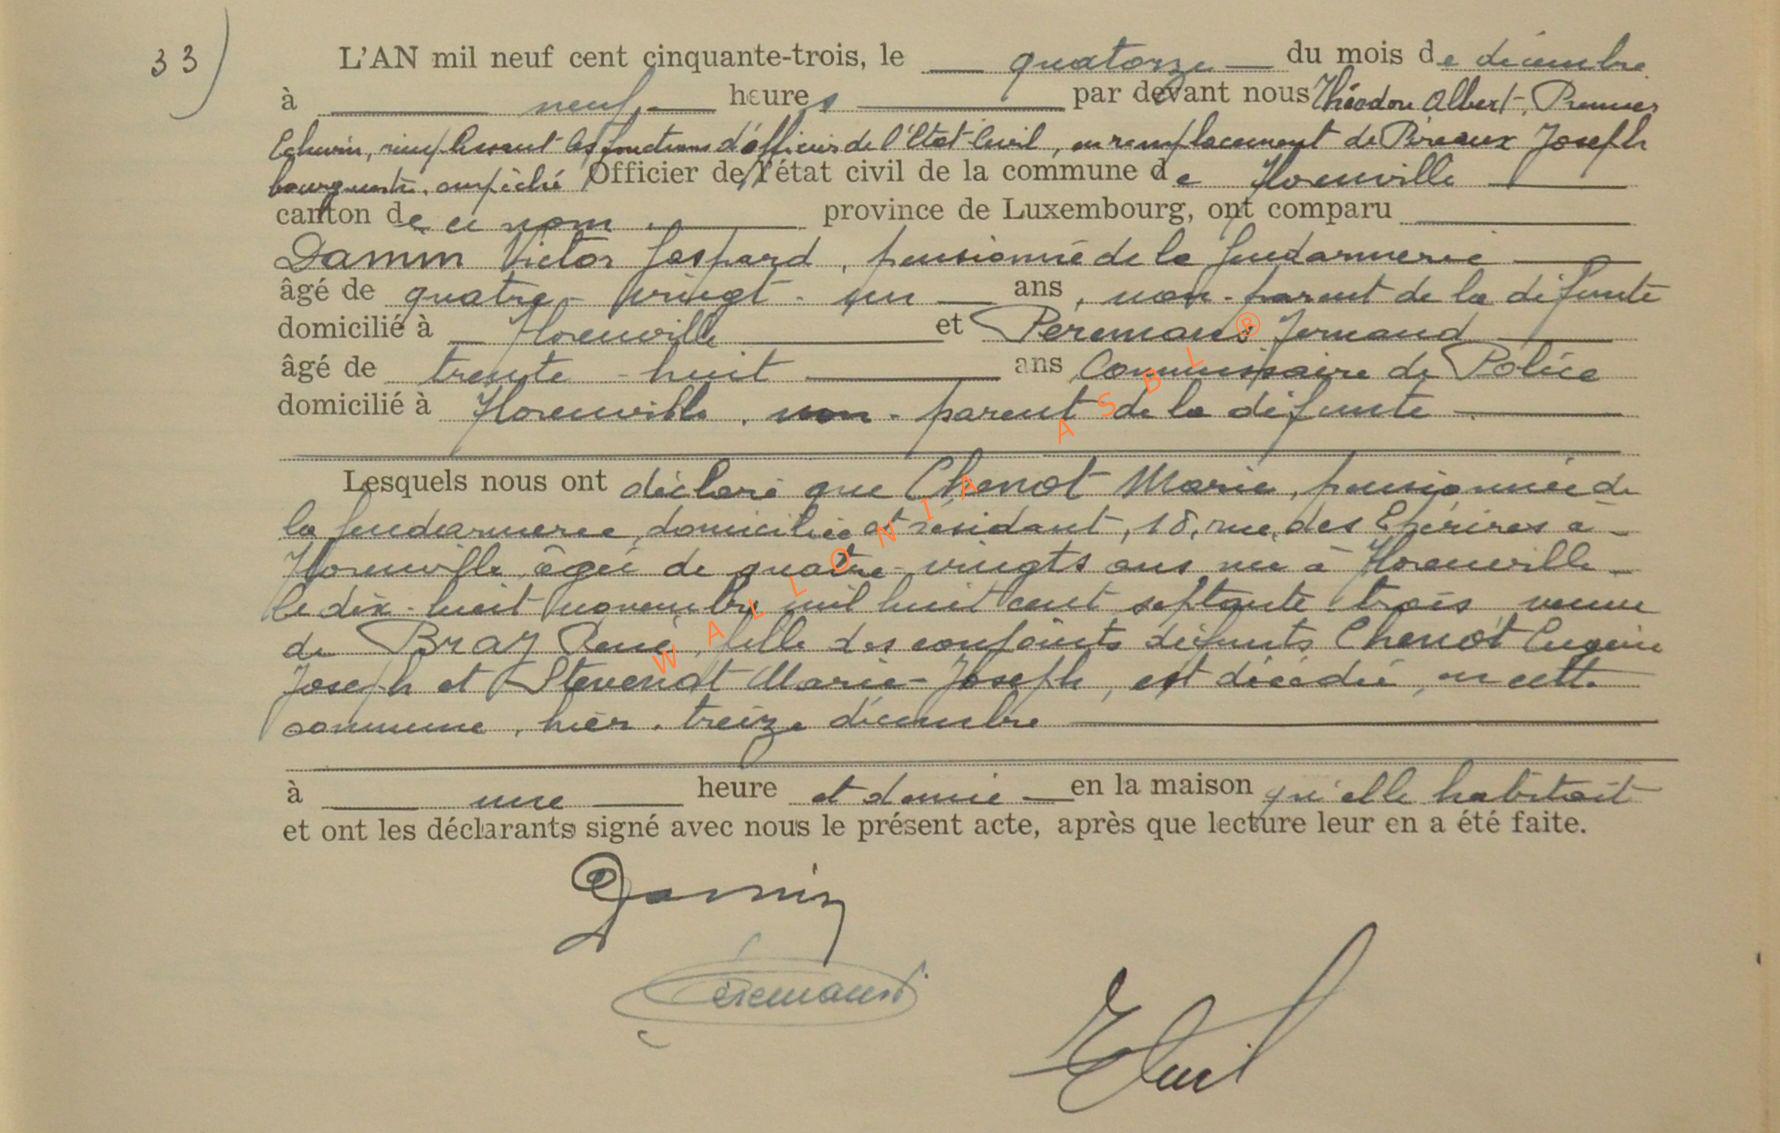 33)
L'AN mil neuf cent cinquante-trois, le quatorze du mois de décembre
à neuf heures par devant nous Théodor Albert, Premier
Echevin, remplissant les fonctions d'officier de l'Etat Civil, en remplacement de Pireaux Joseph
bourgmestre, empêché Officier de l'état civil de la commune de Florenville
canton de ce nom province de Luxembourg, ont comparu
Damm Victor Gaspard, pensionné de la gendarmerie
âgé de quatre-vingt-un ans, non-parent de la défunte
domicilié à Florenville et Péremans Fernand
âgé de trente-huit ans Commissaire de Police
domicilié à Florenville, non-parent de la défunte
Lesquels nous ont déclaré que Chenot Marie, pensionnée de
la gendarmerie, domiciliée et résidant, 18, rue des Epérires à
Florenville âgée de quatre-vingts ans née à Florenville
le dix-huit novembre mil huit cent septante trois veuve
de Bray René, fille des conjoints défunts Chenot Eugène
Joseph et Stevenot Marie-Joseph, est décédée, en cette
commune, hier, treize décembre
à une heure et demie en la maison qu'elle habitait
et ont les déclarants signé avec nous le présent acte, après que lecture leur en a été faite.
Damm
Peremans
WALLONIA ASBL ®